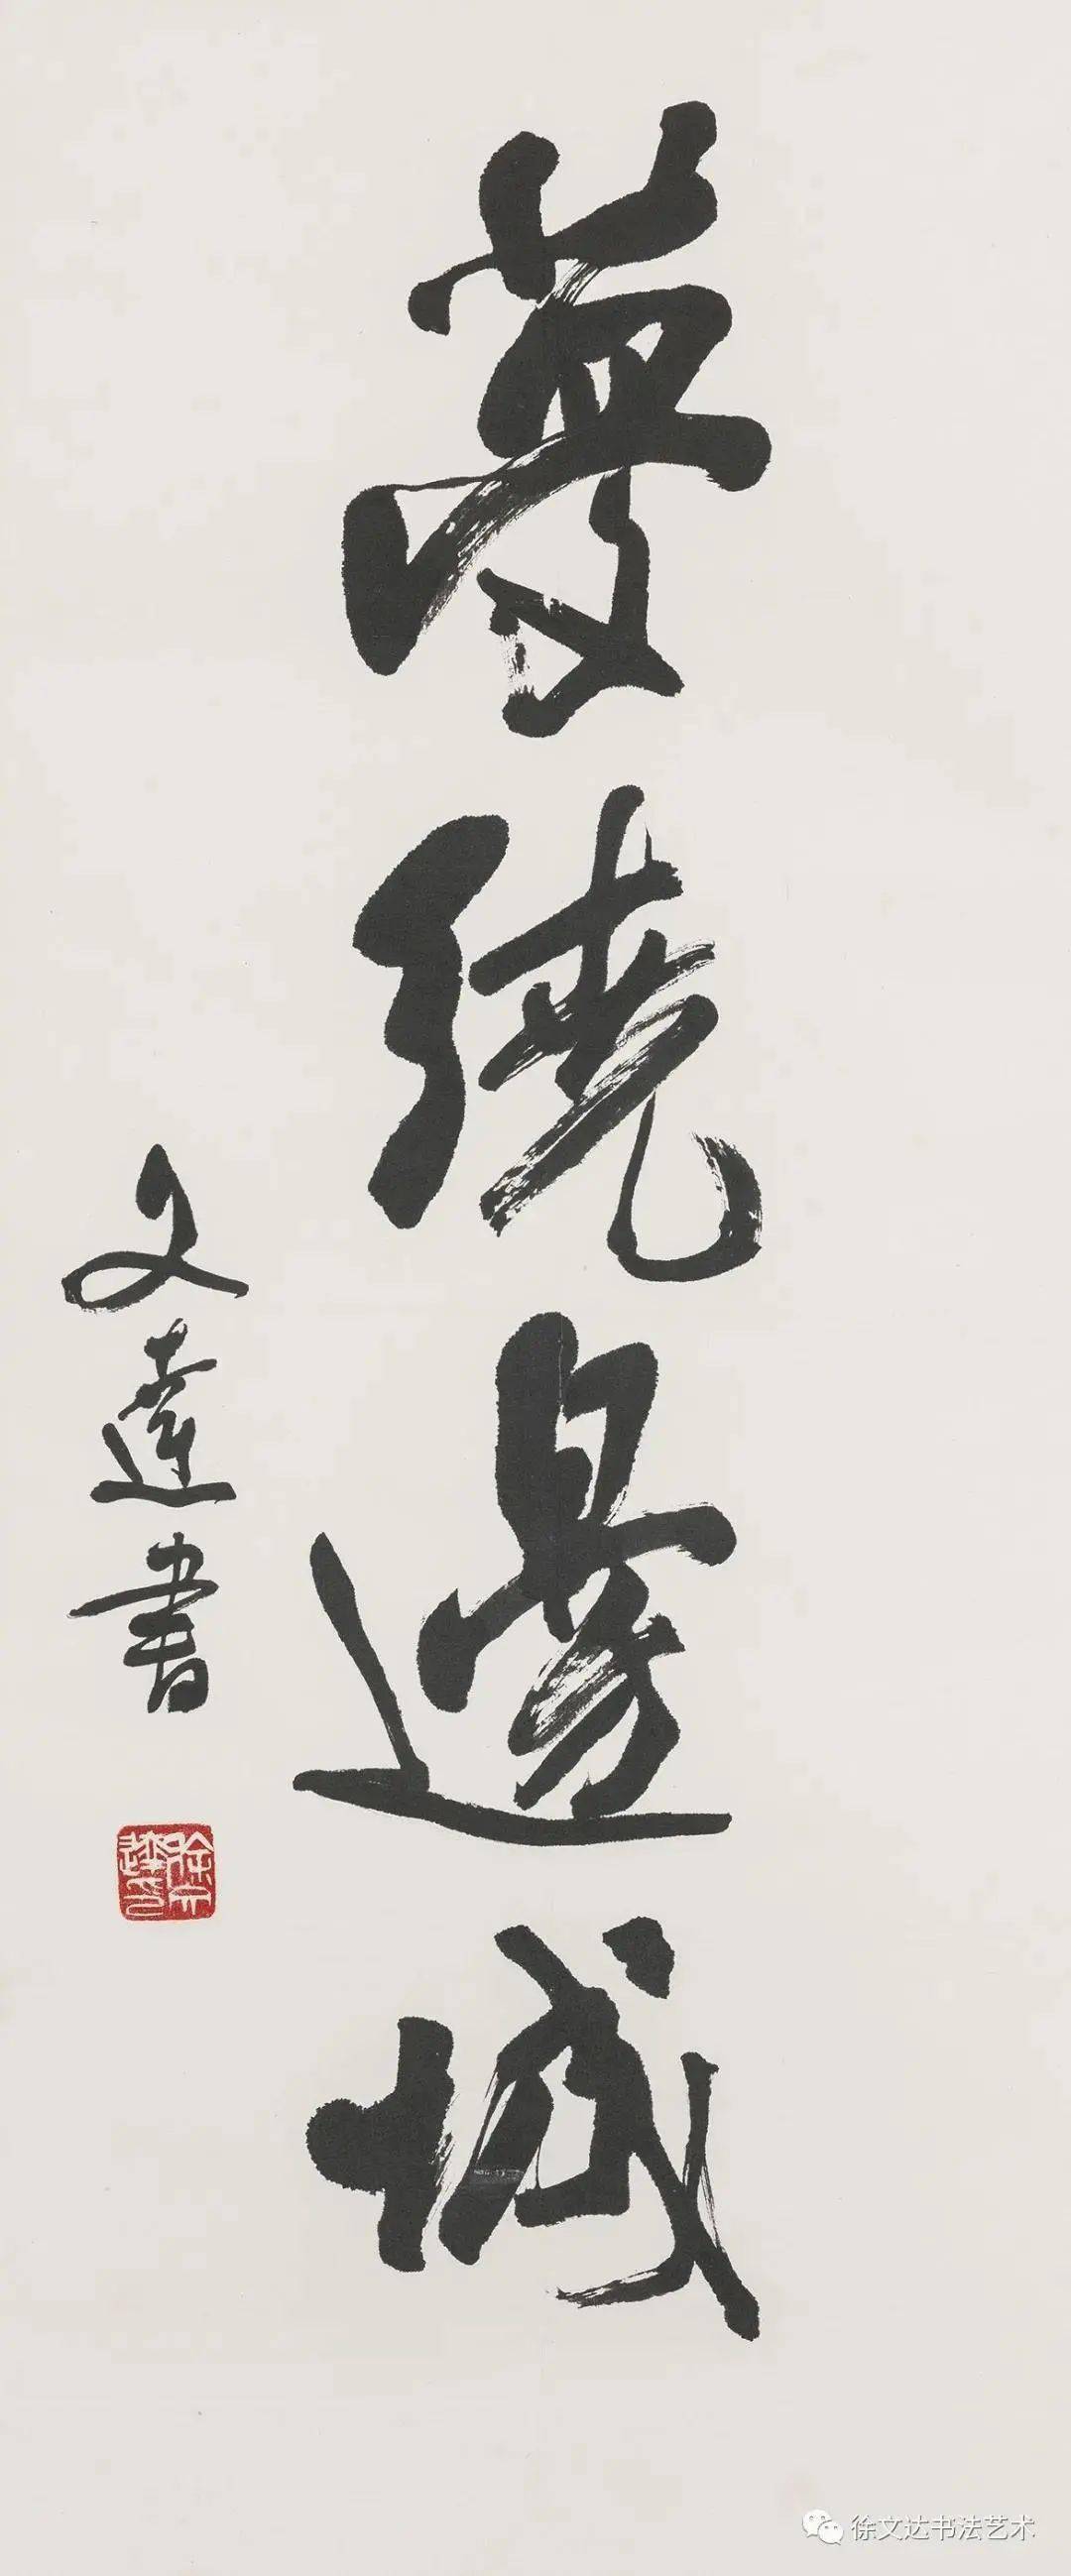 夢繞邊城
文達書
徐文達印
徐文达书法艺术